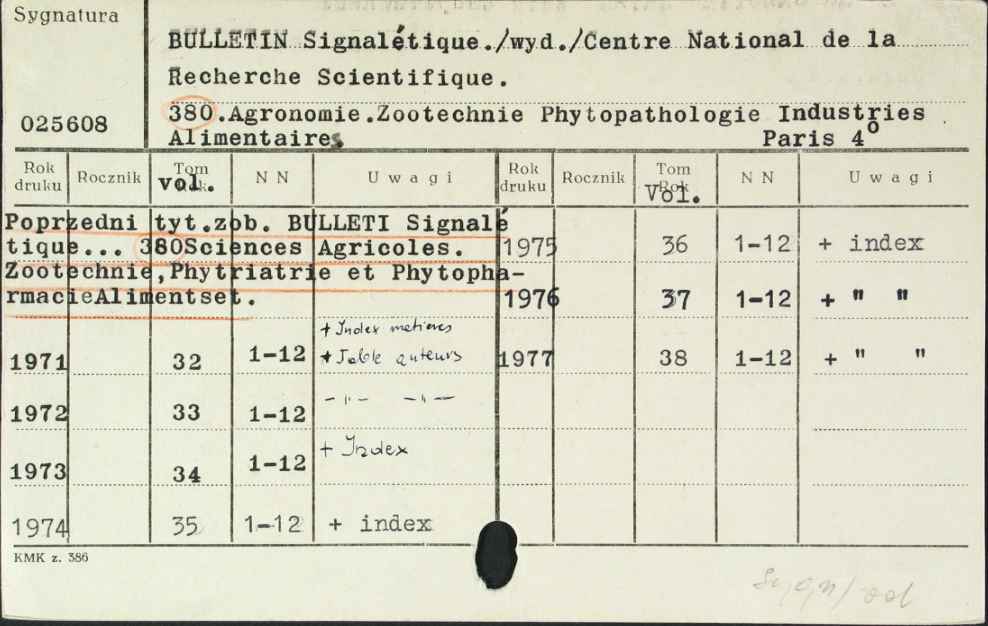 Sygnatura
BULLETIN Signalétique./wyd./Centre National de la
Recherche Scientifique.
380.Agronomie.Zootechnie Phytopathologie Industries
025608
Alimentaires Paris 4°
Rok druku Rocznik Tom vol. N N Uwagi Rok druku Rocznik Tom Rok Vol. N N Uwagi
Poprzedni tyt.zob. BULLETI Signalé
tique... 380Sciences Agricoles. 1975 36 1-12 + index
Zootechnie,Phytriatrie et Phytopha-
rmacieAlimentset. 1976 37 1-12 + " "
+ Index metieres
1971 32 1-12 + Table auteurs 1977 38 1-12 + " "
1972 33 1-12 -"- -"-
1973 34 1-12 + Index
1974 35 1-12 + index
KMK z. 386